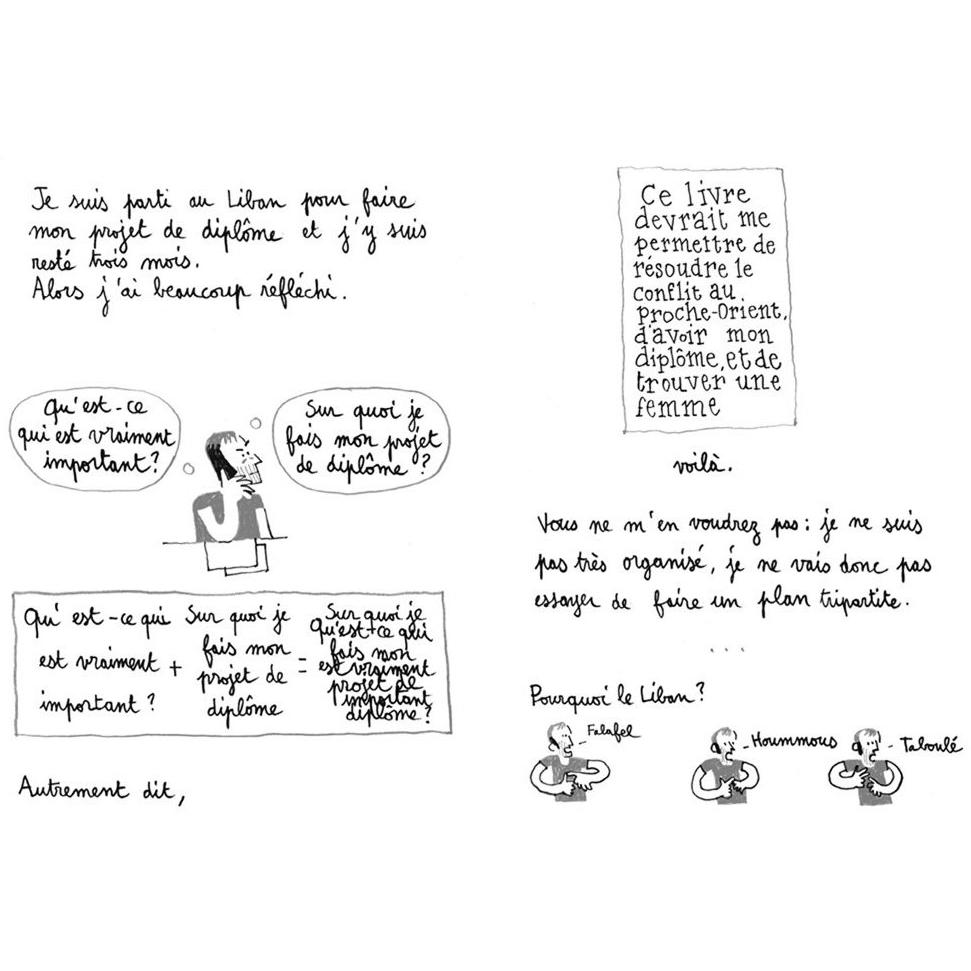 Je suis parti au Liban pour faire
mon projet de diplôme et j'y suis
resté trois mois.
Alors j'ai beaucoup réfléchi.
Qu'est-ce
qui est vraiment
important?
Sur quoi je
fais mon projet
de diplôme ?
Qu'est-ce qui
est vraiment
important ?
+
Sur quoi je
fais mon
projet de
diplôme
=
Sur quoi je
Qu'est-ce qui
fais mon
est vraiment
projet de
important
diplôme ?
Autrement dit,
Ce livre
devrait me
permettre de
résoudre le
conflit au
proche-Orient,
d'avoir mon
diplôme, et de
trouver une
femme
voilà.
Vous ne m'en voudrez pas : je ne suis
pas très organisé, je ne vais donc pas
essayer de faire un plan tripartite.
...
Pourquoi le Liban ?
- Falafel
- Hoummous
- Taboulé